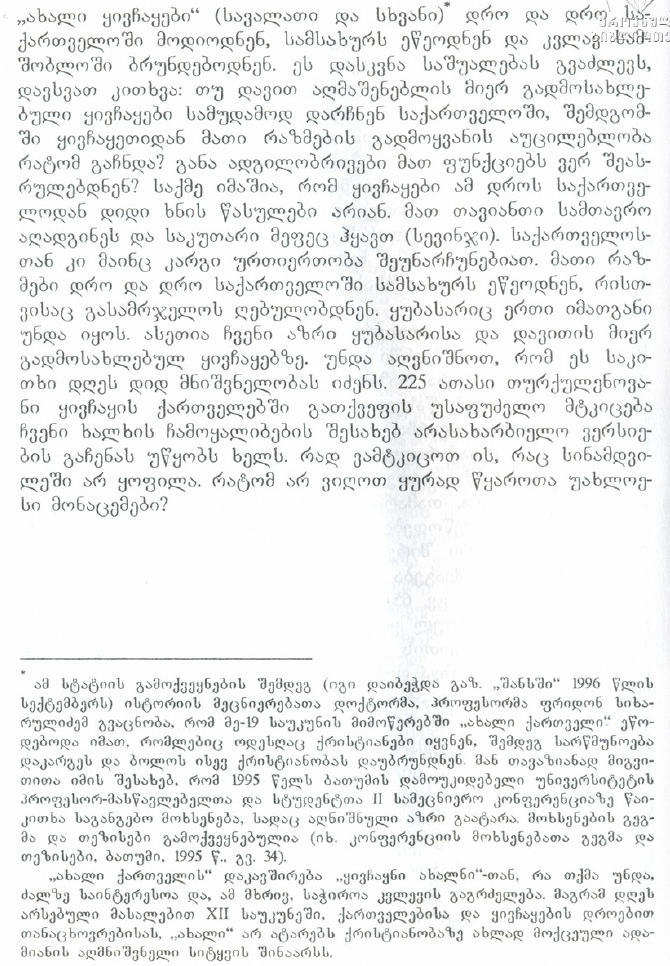 „ახალი ყივჩაყები“ (სავალათი და სხვანი)* დრო და დრო სა-
ქართველოში მოდიოდნენ, სამსახურს ეწეოდნენ და კვლავ სამ-
შობლოში ბრუნდებოდნენ. ეს დასკვნა საშუალებას გვაძლევს,
დავსვათ კითხვა: თუ დავით აღმაშენებლის მიერ გადმოსახლე-
ბული ყივჩაყები სამუდამოდ დარჩნენ საქართველოში, შემდგომ-
ში ყივჩაყეთიდან მათი რაზმების გადმოყვანის აუცილებლობა
რატომ გაჩნდა? განა ადგილობრივები მათ ფუნქციებს ვერ შეას-
რულებდნენ? საქმე იმაშია, რომ ყივჩაყები ამ დროს საქართვე-
ლოდან დიდი ხნის წასულები არიან. მათ თავიანთი სამთავრო
აღადგინეს და საკუთარი მეფეც ჰყავთ (სევინჯი). საქართველოს-
თან კი მაინც კარგი ურთიერთობა შეუნარჩუნებიათ. მათი რაზ-
მები დრო და დრო საქართველოში სამსახურს ეწეოდნენ, რისთ-
ვისაც გასამრჯელოს ღებულობდნენ. ყუბასარიც ერთი იმათგანი
უნდა იყოს. ასეთია ჩვენი აზრი ყუბასარისა და დავითის მიერ
გადმოსახლებულ ყივჩაყებზე. უნდა აღვნიშნოთ, რომ ეს საკი-
თხი დღეს დიდ მნიშვნელობას იძენს. 225 ათასი თურქულენოვა-
ნი ყივჩაყის ქართველებში გათქვეფის უსაფუძვლო მტკიცება
ჩვენი ხალხის ჩამოყალიბების შესახებ არასახარბიელო ვერსიე-
ბის გაჩენას უწყობს ხელს. რად ვამტკიცოთ ის, რაც სინამდვი-
ლეში არ ყოფილა. რატომ არ ვიღოთ ყურად წყაროთა უახლოე-
სი მონაცემები?
* ამ სტატიის გამოქვეყნების შემდეგ (იგი დაიბეჭდა გაზ. „შანსში“ 1996 წლის
სექტემბერს) ისტორიის მეცნიერებათა დოქტორმა, პროფესორმა ფრიდონ სიხა-
რულიძემ გვაცნობა, რომ მე-19 საუკუნის მიმოწერებში „ახალი ქართველი“ ეწო-
დებოდა იმათ, რომლებიც ოდესღაც ქრისტიანები იყვნენ, შემდეგ სარწმუნოება
დაკარგეს და ბოლოს ისევ ქრისტიანობას დაუბრუნდნენ. მან თავაზიანად მიგვი-
თითა იმის შესახებ, რომ 1995 წელს ბათუმის დამოუკიდებელი უნივერსიტეტის
პროფესორ-მასწავლებელთა და სტუდენტთა II სამეცნიერო კონფერენციაზე წაი-
კითხა საგანგებო მოხსენება, სადაც აღნიშნული აზრი გაატარა. მოხსენების გეგ-
მა და თეზისები გამოქვეყნებულია (იხ. კონფერენციის მოხსენებათა გეგმა და
თეზისები, ბათუმი, 1995 წ., გვ. 34).
„ახალი ქართველის“ დაკავშირება „ყივჩაყნი ახალნი“-თან, რა თქმა უნდა,
ძალზე საინტერესოა და, ამ მხრივ, საჭიროა კვლევის გაგრძელება. მაგრამ დღეს
არსებული მასალებით XII საუკუნეში, ქართველებისა და ყივჩაყების დროებით
თანაცხოვრებისას, „ახალი“ არ ატარებს ქრისტიანობაზე ახლად მოქცეული ადა-
მიანის აღმნიშვნელი სიტყვის შინაარსს.